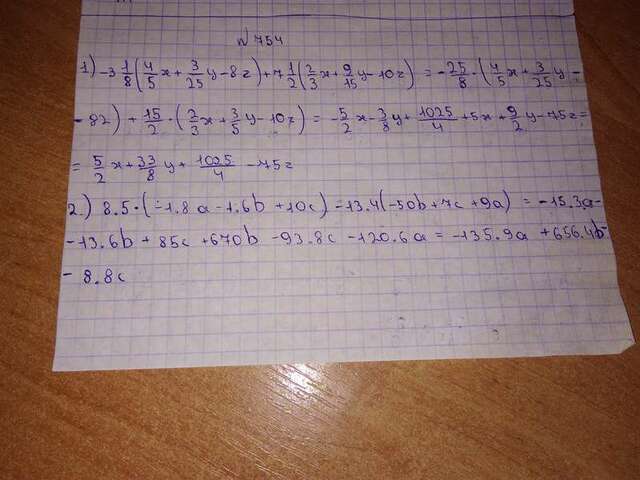 N 754
1) -3 1/8 (4/5 x + 3/25 y - 8z) + 7 1/2 (2/3 x + 9/15 y - 10z) = - 25/8 · (4/5 x + 3/25 y -
- 82) + 15/2 · (2/3 x + 3/5 y - 10z) = - 5/2 x - 3/8 y + 1025/4 + 5x + 9/2 y - 75z =
= 5/2 x + 33/8 y + 1025/4 - 75z
2.) 8.5 · (-1.8a - 1.6b + 10c) - 13.4(-50b + 7c + 9a) = -15.3a -
- 13.6b + 85c + 670b - 93.8c - 120.6a = -135.9a + 656.4b -
- 8.8c